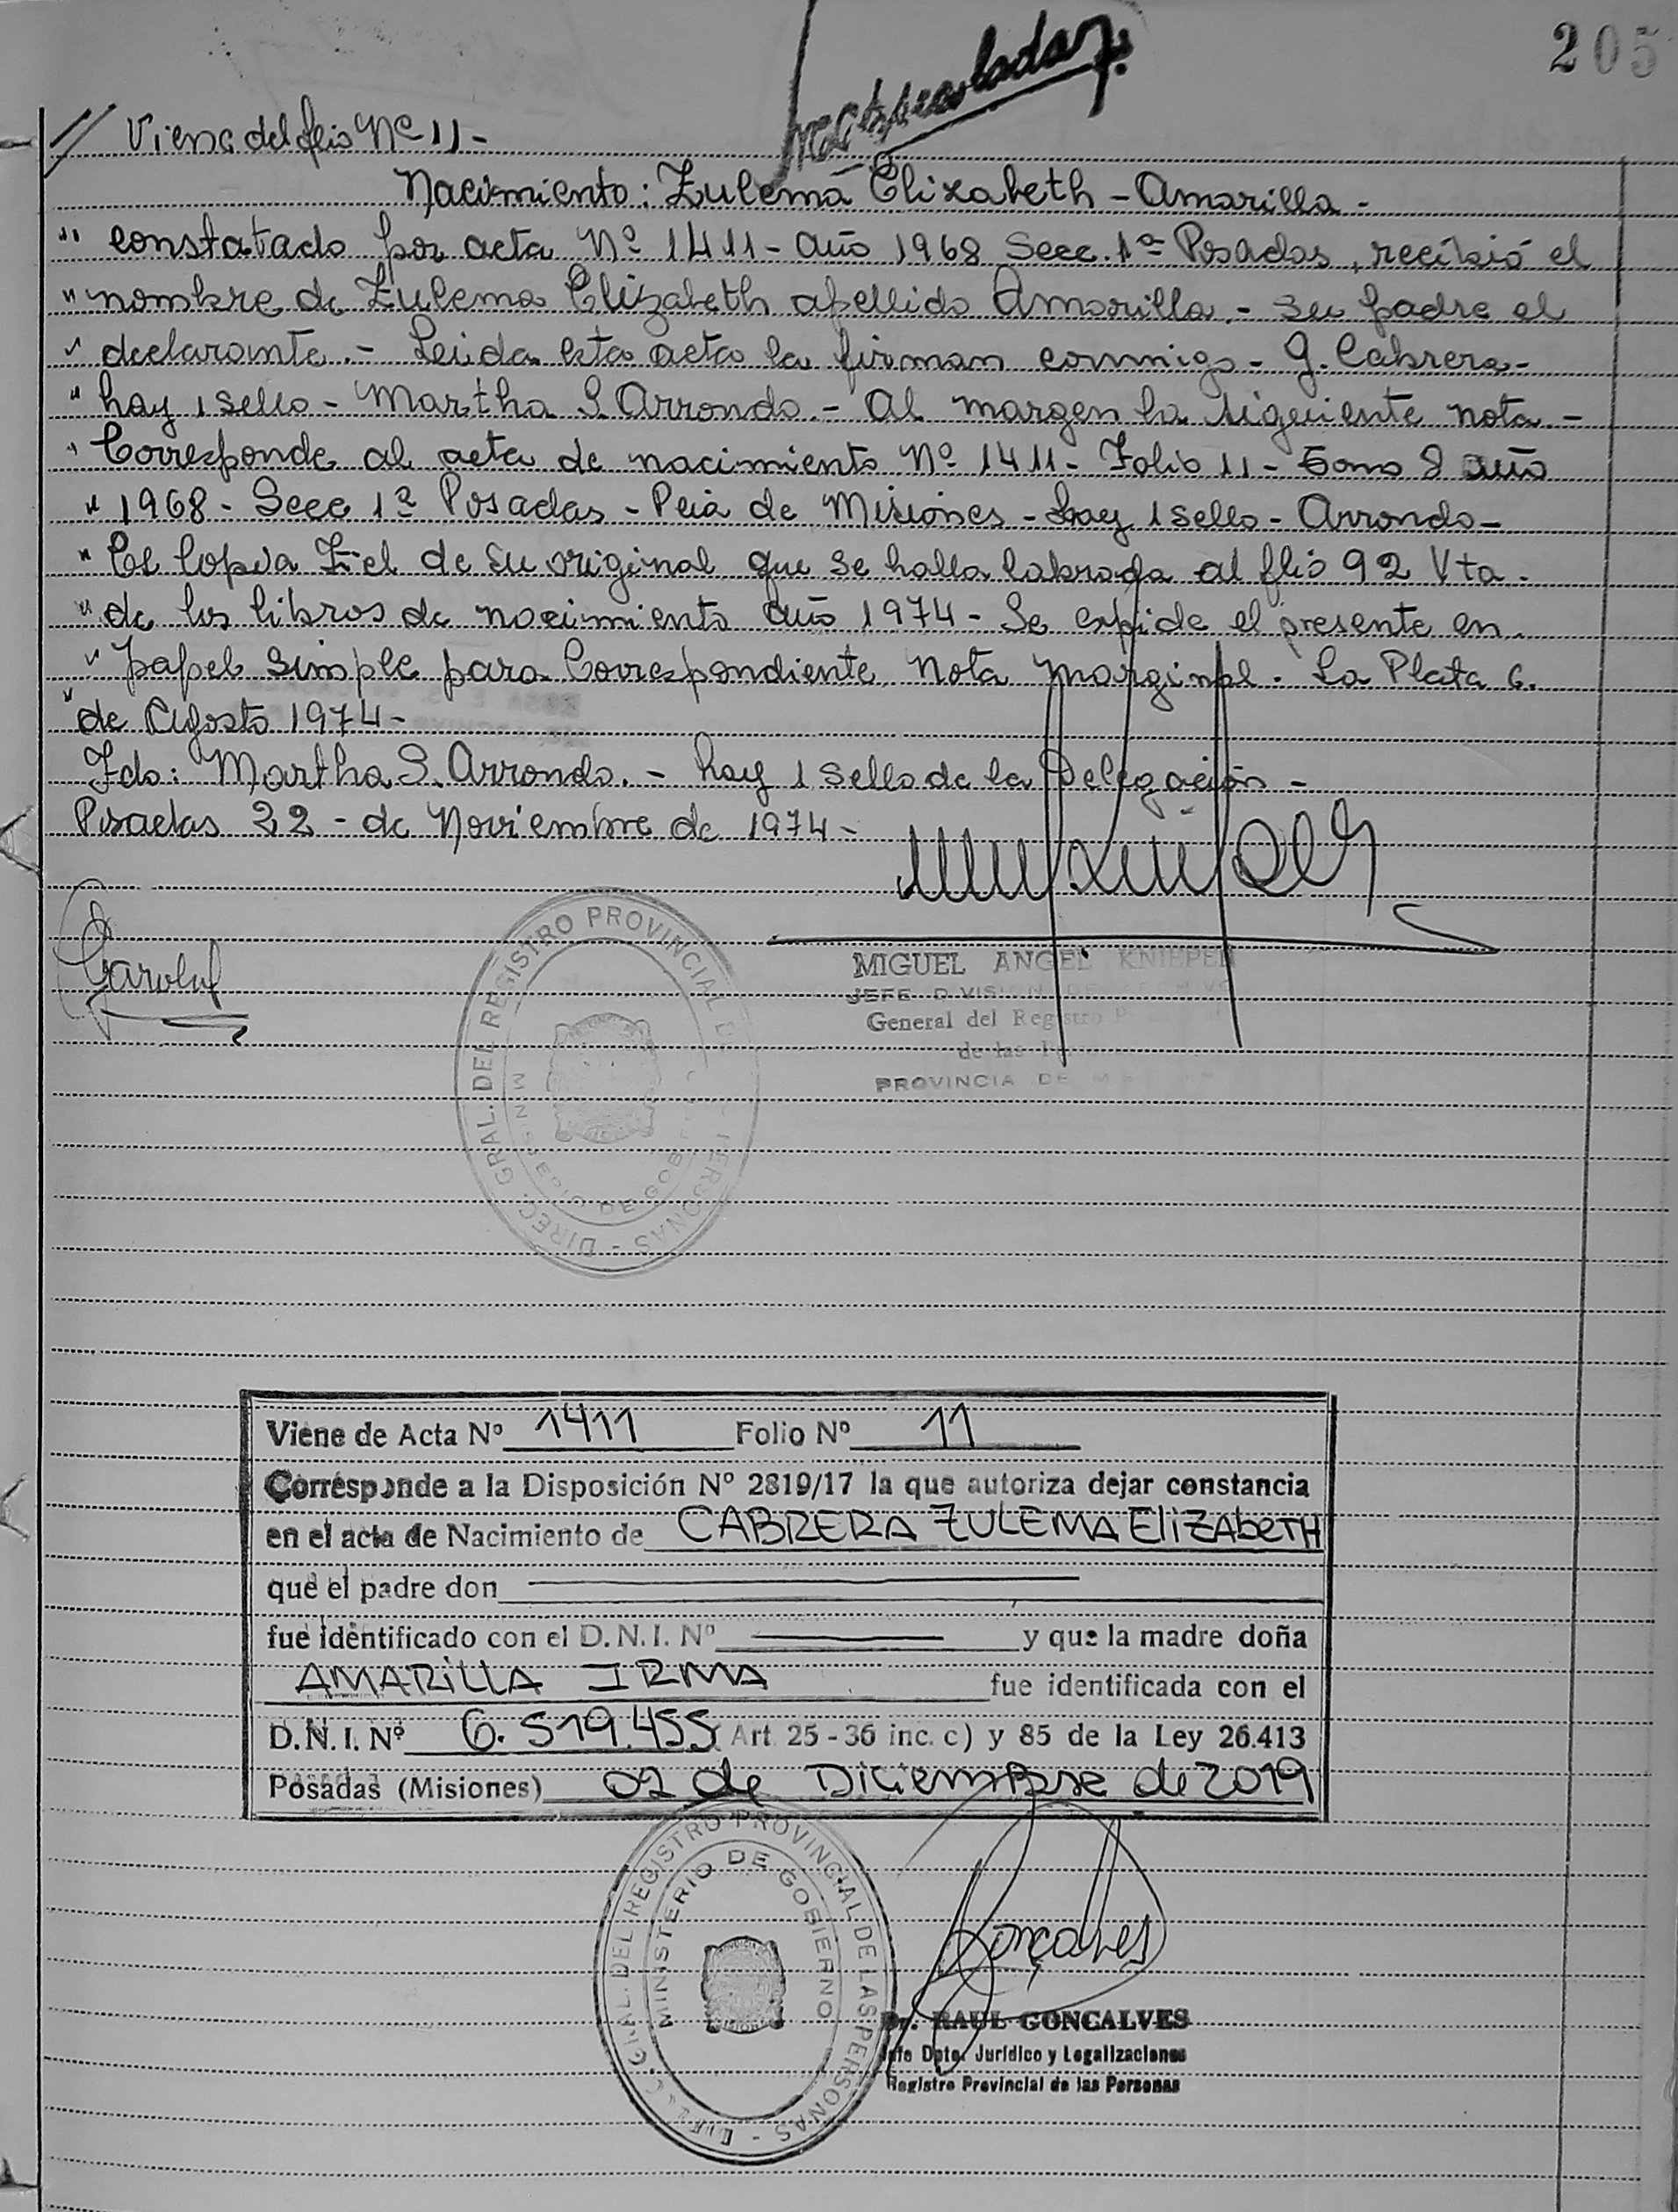 205
// Viene del flio Nº 11 -
Nacimiento: Zulema Elizabeth - Amarilla -
" constatado por acta Nº 1411 - año 1968 Secc. 1ª Posadas, recibió el
" nombre de Zulema Elizabeth apellido Amarilla. - su padre el
" declarante. - Leida esta acta la firman conmigo - G. Cabrera -
" hay 1 sello - Martha S. Arrondo. - Al margen la siguiente nota. -
" Corresponde al acta de nacimiento Nº 1411 - Folio 11 - Tomo 8 año
" 1968 - Secc 1ª Posadas - Pcia de Misiones - hay 1 sello - Arrondo -
" Es Copia Fiel de su original que se halla labrada al flio 92 Vta.
" de los libros de nacimiento año 1974 - Se expide el presente en
" papel simple para Correspondiente Nota Marginal. La Plata 6.
" de Agosto 1974 -
Fdo: Martha S. Arrondo. - hay 1 sello de la Delegación -
Posadas 22 - de Noviembre de 1974 -
DIREC. GRAL. DEL REGISTRO PROVINCIAL DE PERSONAS -
DE GOB
MIGUEL ANGEL KNIEPER
JEFE DIVISION DE ARCHIVO
General del Registro
de las
PROVINCIA DE
Viene de Acta Nº 1411 Folio Nº 11
Corresponde a la Disposición Nº 2819/17 la que autoriza dejar constancia
en el acta de Nacimiento de CABRERA ZULEMA ElIZAbETH
que el padre don
fue identificado con el D.N.I. Nº y que la madre doña
AMARILLA IRMA fue identificada con el
D.N.I. Nº 6.519.455 (Art. 25 - 36 inc. c) y 85 de la Ley 26.413
Posadas (Misiones) 02 de Diciembre de 2019
GRAL. DEL REGISTRO PROVINCIAL DE LAS PERSONAS -
MINISTERIO DE GOBIERNO
Gonçalves
Dr. RAUL GONCALVES
Jefe Dpto. Jurídico y Legalizaciones
Registro Provincial de las Personas